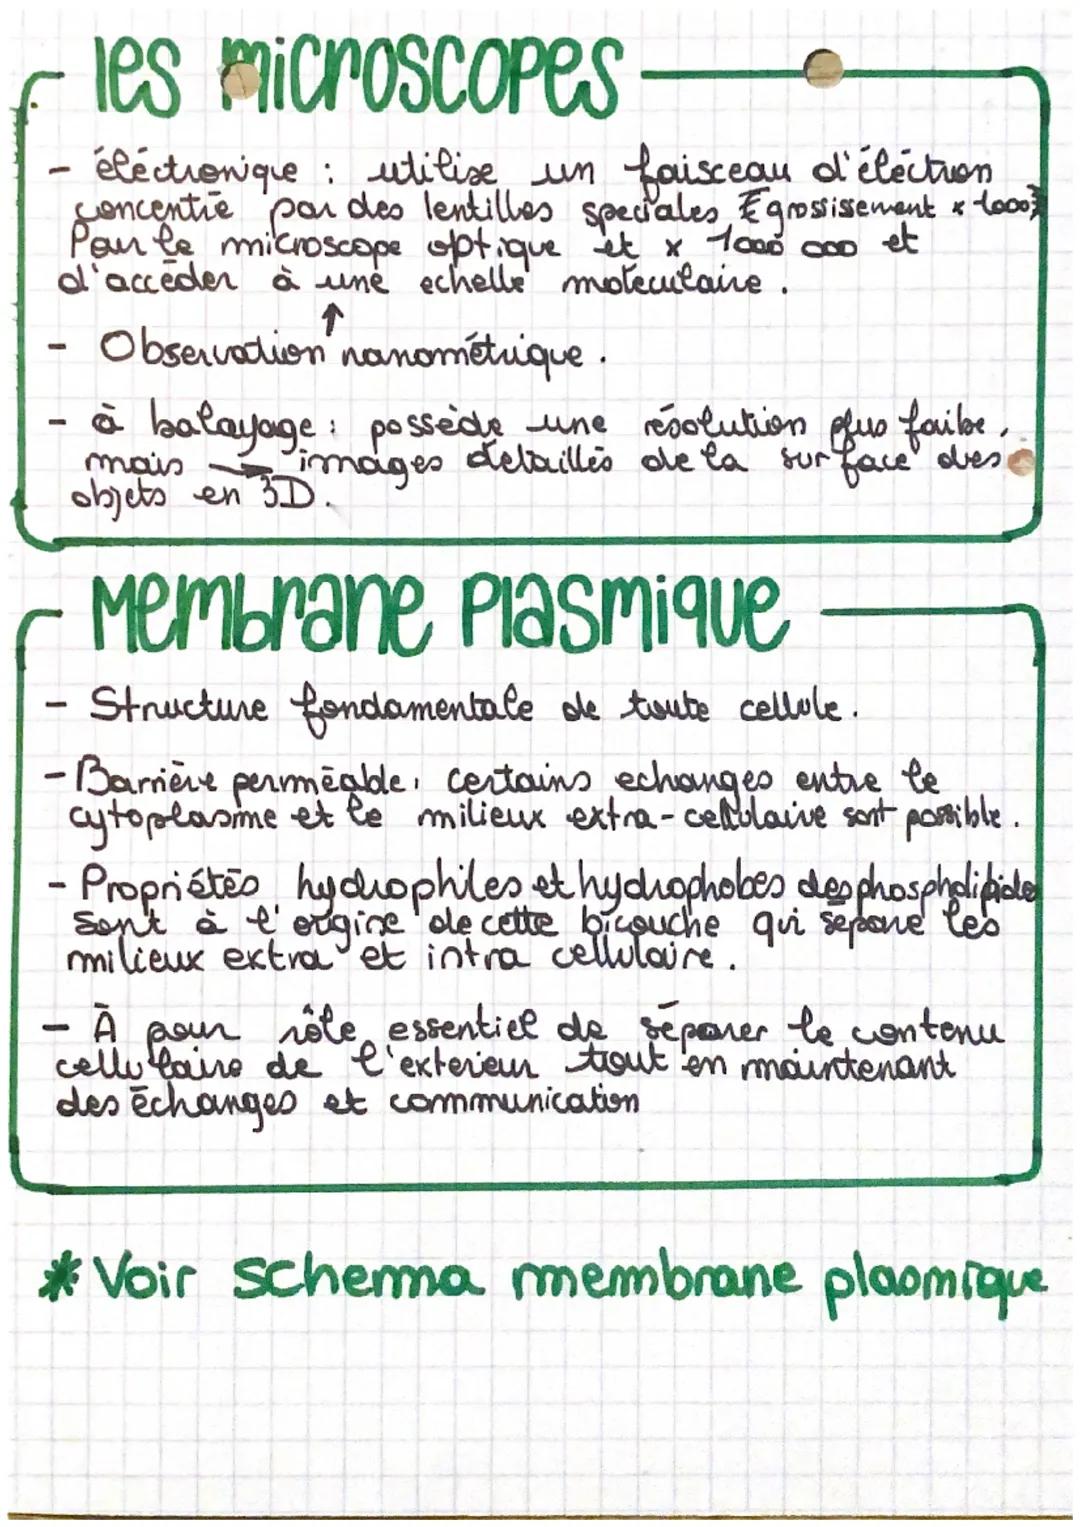 les microscopes
- éléctronique : utilise un faisceau d'éléctron
concentré par des lentilles speciales (grossissement x 1000)
Pour le microscope optique et x 1000 000 et
d'accéder à une echelle moleculaire.
- Observation nanométrique.
- à balayage : possède une résolution plus faible,
mais → images detaillés de la surface des
objets en 3D.
Membrane Plasmique
- Structure fondamentale de toute cellule.
- Barrière perméable, certains echanges entre le
cytoplasme et le milieux extra-cellulaire sont possible.
- Propriétés hydrophiles et hydrophobes des phospholipide
sont à l'origine de cette bicouche qui sépare les
milieux extra et intra cellulaire.
- À pour rôle essentiel de séparer le contenu
cellulaire de l'exterieur tout en maintenant
des échanges et communication
* Voir schema membrane plasmique